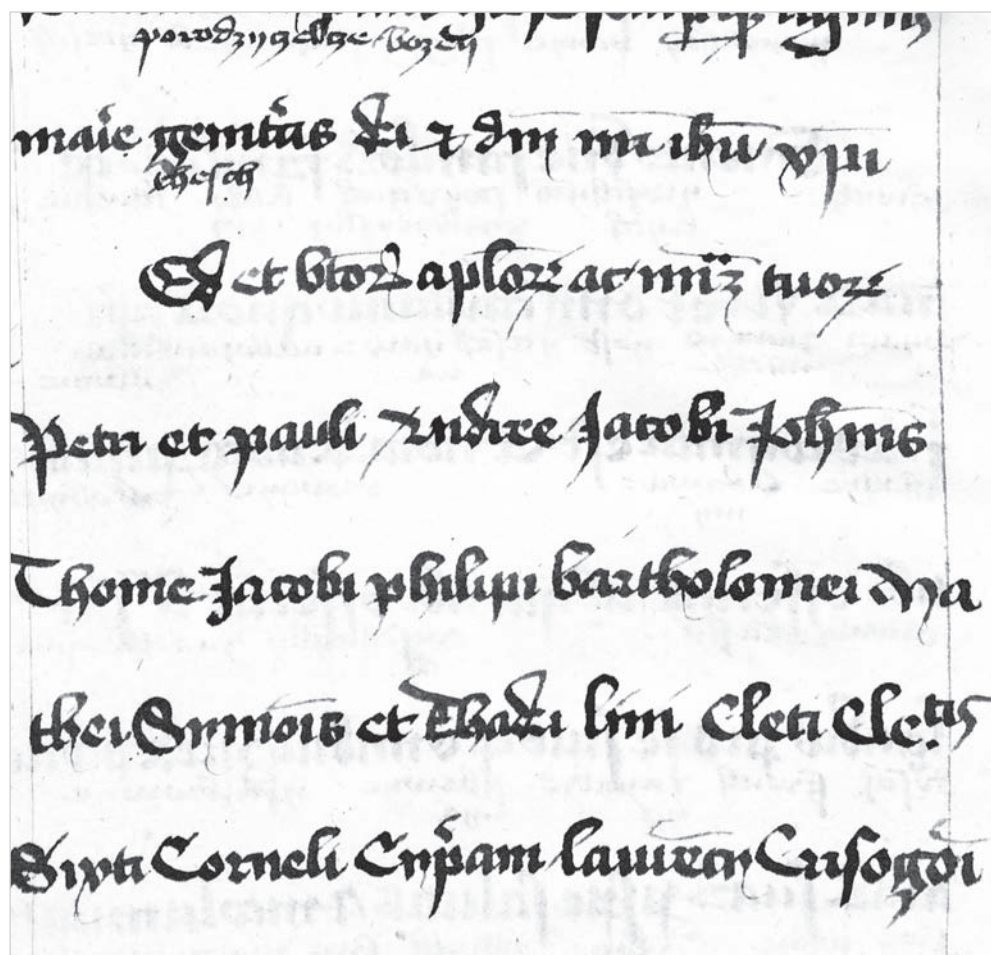 porodzyczelcze bozey
marie genitricis dei et dni nri ihu xpi
chesch
Sed et btor aplor ac mrm tuor
Petri et pauli Andree Jacobi Johnis
Thome Jacobi philipi bartholomei Ma
thei Symois et Thadei lini Cleti Cletis
Sixti Corneli Cypani laurecy Crisogoi